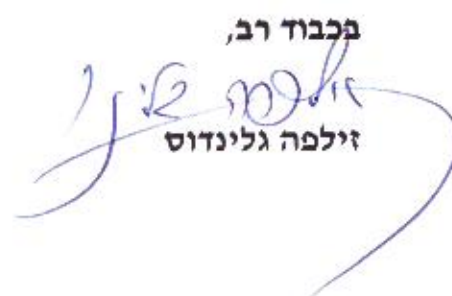 בכבוד רב,
זילפה גלינדוס